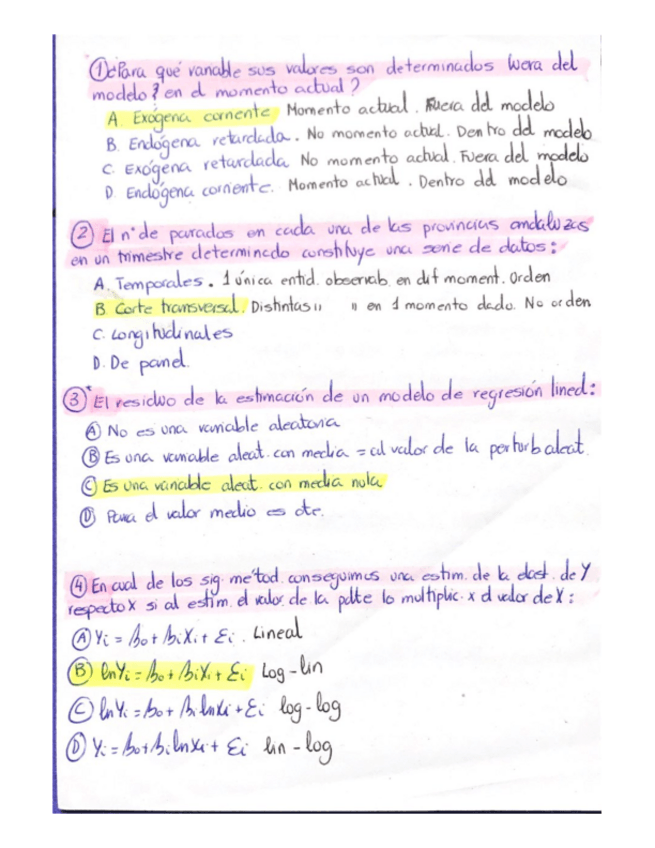 ① ¿Para qué variable sus valores son determinados fuera del
modelo y en el momento actual?
A. Exógena corriente Momento actual. Fuera del modelo
B. Endógena retardada. No momento actual. Dentro del modelo
C. Exógena retardada No momento actual. Fuera del modelo
D. Endógena corriente. Momento actual. Dentro del modelo
② El nº de parados en cada una de las provincias andaluzas
en un trimestre determinado constituye una serie de datos:
A. Temporales. 1 única entid. observab. en dif moment. Orden
B. Corte transversal. Distintas " " en 1 momento dado. No orden
C. Longitudinales
D. De panel.
③ El residuo de la estimación de un modelo de regresión lineal:
Ⓐ No es una variable aleatoria
Ⓑ Es una variable aleat. con media = al valor de la perturb aleat.
Ⓒ Es una variable aleat. con media nula
Ⓓ Para el valor medio es cte.
④ En cual de los sig. métod. conseguimos una estim. de la elast. de Y
respecto X si al estim. el valor de la pdte lo multiplic. x el valor de X:
Ⓐ Yi = β0 + βiXi + Ei. Lineal
Ⓑ lnYi = β0 + βiXi + Ei Log-lin
Ⓒ lnYi = β0 + βilnXi + Ei log-log
Ⓓ Yi = β0 + βilnXi + Ei lin-log